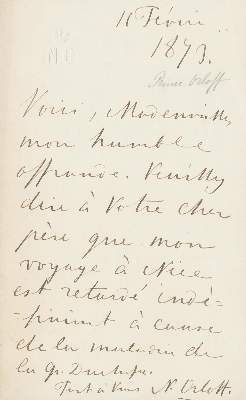 11 Févri
1873.
Prince Orloff
Voici, Mademoiselle,
mon humble
offrande. Veuillez
dire à Votre cher
père que mon
voyage à Nice
est retardé indé-
-finimt à cause
de la maladie de
la Gr. Duchesse.
Tout à Vous N. Orloff.